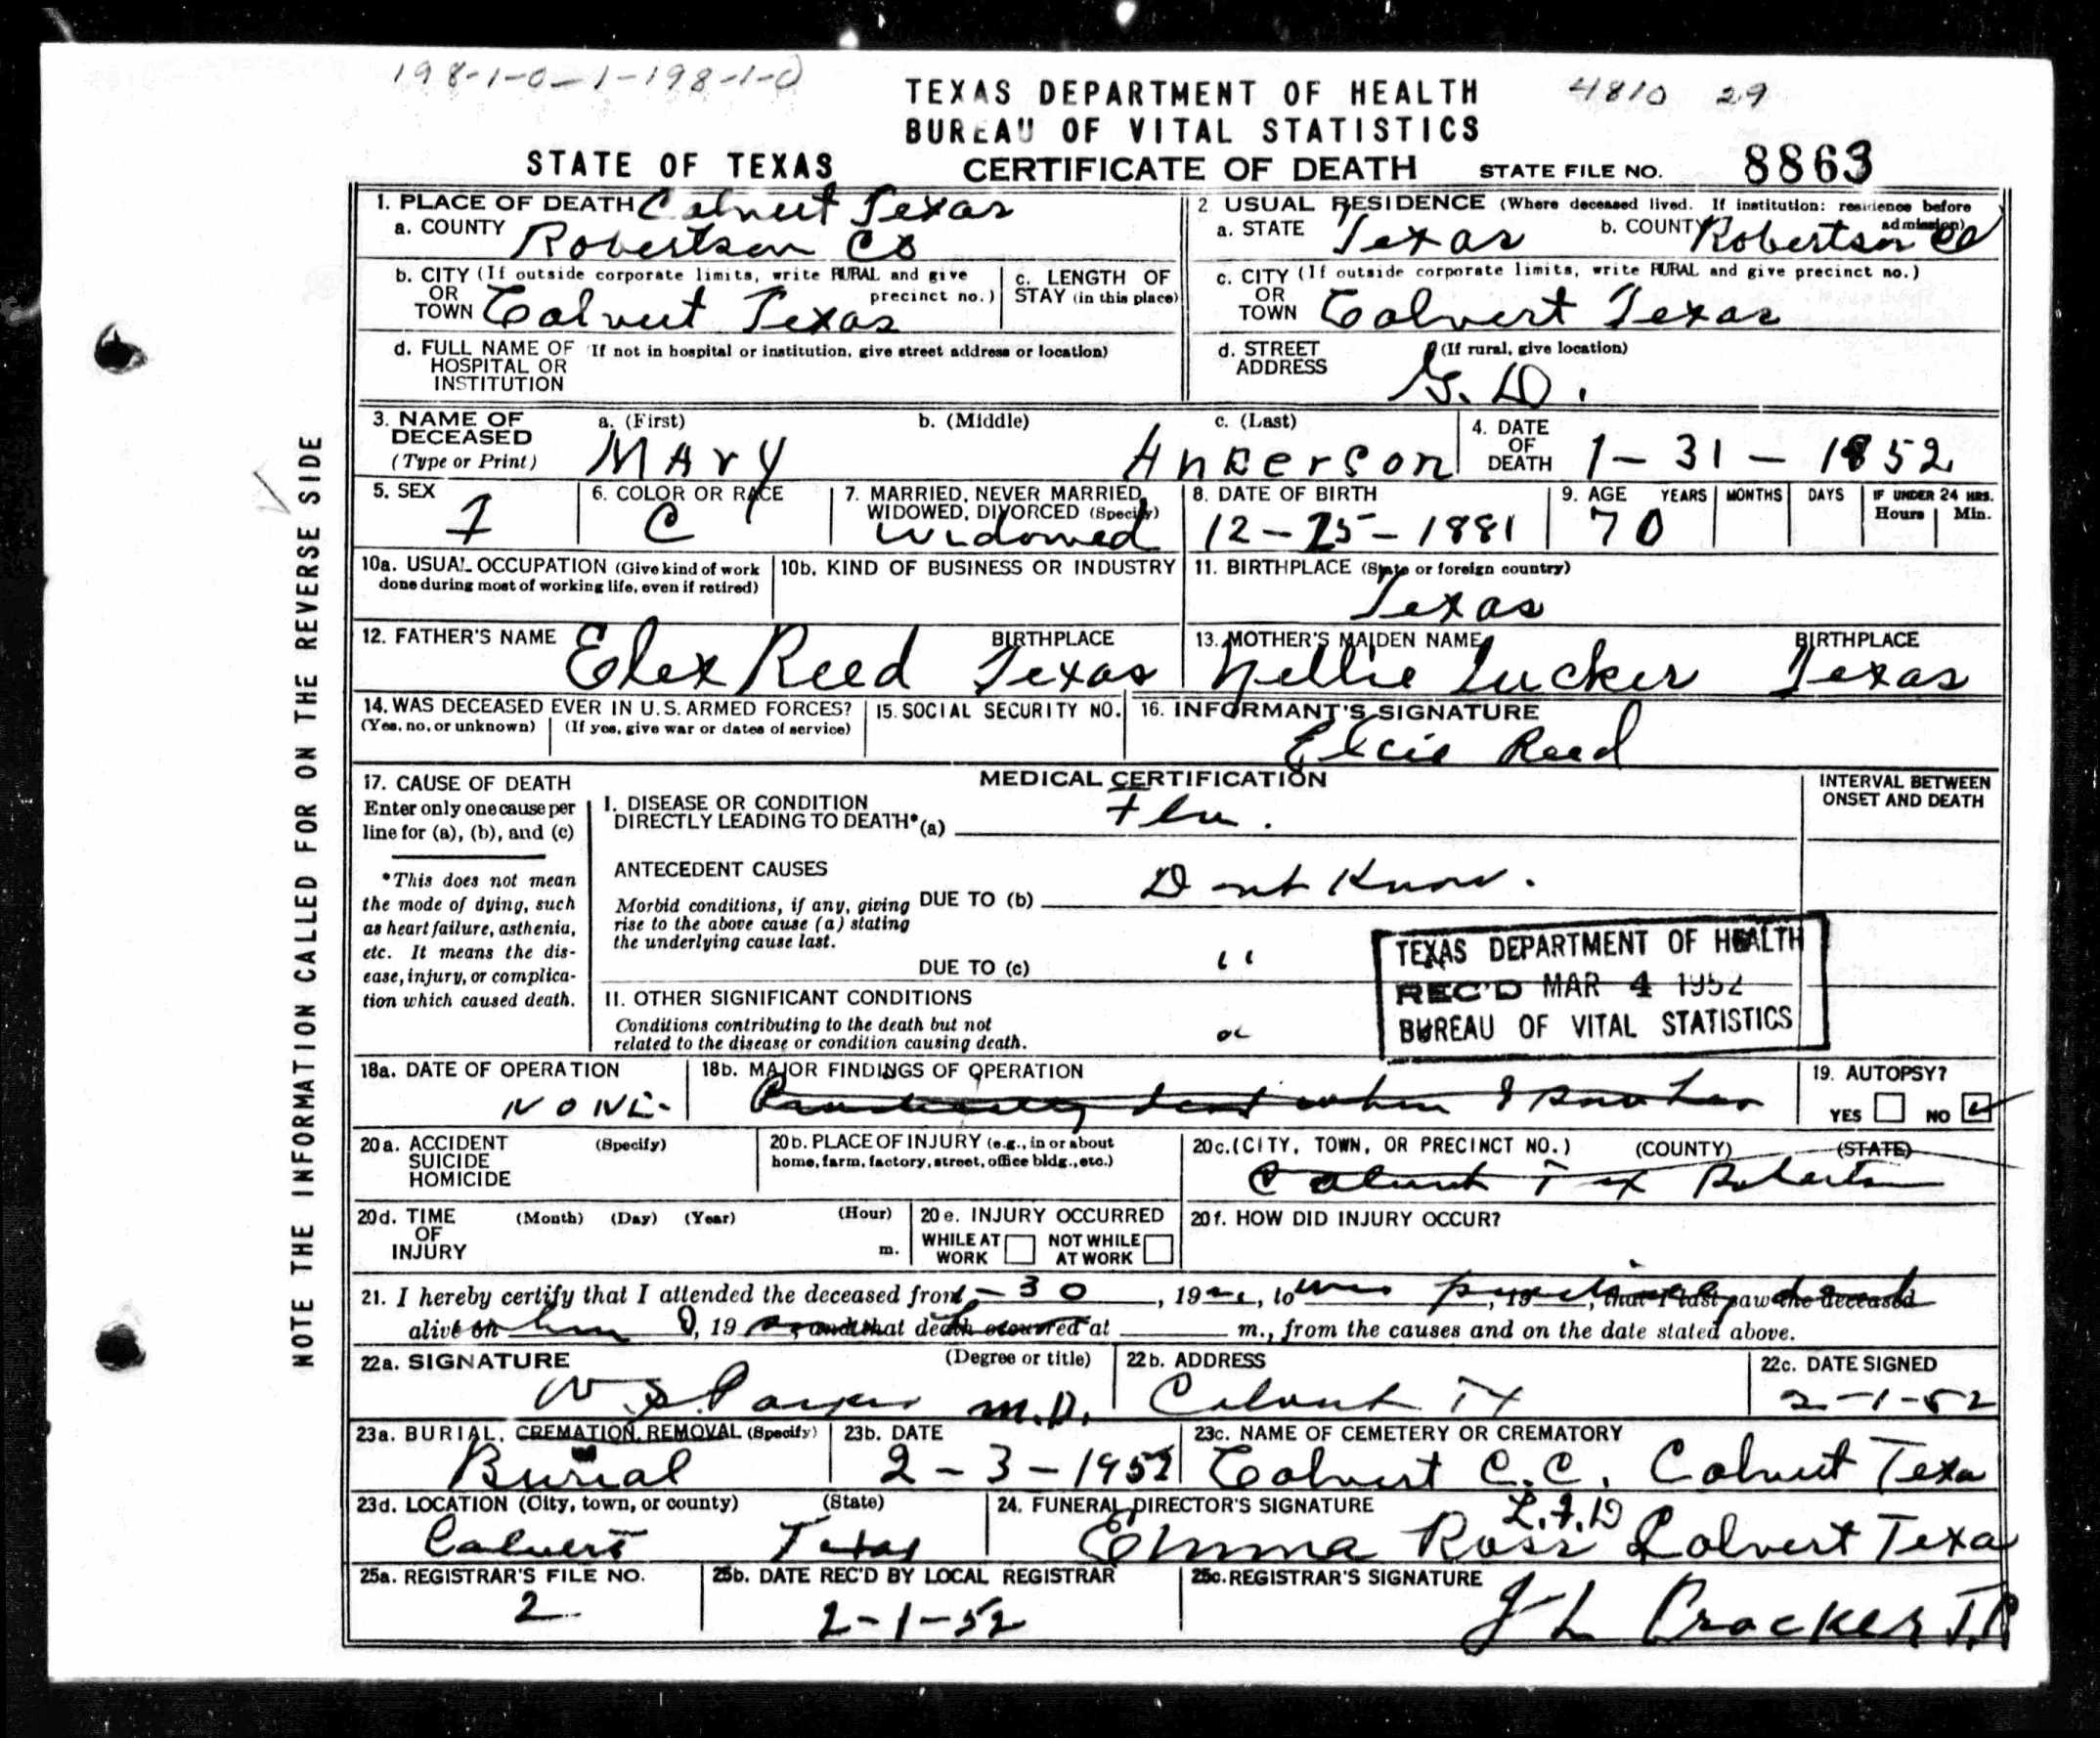 198-1-0-1-198-1-0
TEXAS DEPARTMENT OF HEALTH 4810 29
BUREAU OF VITAL STATISTICS
STATE OF TEXAS CERTIFICATE OF DEATH STATE FILE NO. 8863
NOTE THE INFORMATION CALLED FOR ON THE REVERSE SIDE
1. PLACE OF DEATH Calvert Texas
a. COUNTY Robertson Co
2 USUAL RESIDENCE (Where deceased lived. If institution: residence before admission)
a. STATE Texas b. COUNTY Robertson Co
b. CITY (If outside corporate limits, write RURAL and give precinct no.)
OR
TOWN Calvert Texas
c. LENGTH OF
STAY (in this place)
c. CITY (If outside corporate limits, write RURAL and give precinct no.)
OR
TOWN Calvert Texas
d. FULL NAME OF (If not in hospital or institution, give street address or location)
HOSPITAL OR
INSTITUTION
d. STREET (If rural, give location)
ADDRESS G. D.
3. NAME OF a. (First) b. (Middle) c. (Last)
DECEASED
(Type or Print) MARY Ankerson
4. DATE
OF
DEATH 1-31-1952
5. SEX F
6. COLOR OR RACE C
7. MARRIED, NEVER MARRIED,
WIDOWED, DIVORCED (Specify)
Widowed
8. DATE OF BIRTH
12-25-1881
9. AGE YEARS MONTHS DAYS IF UNDER 24 HRS.
Hours Min.
70
10a. USUAL OCCUPATION (Give kind of work
done during most of working life, even if retired)
10b. KIND OF BUSINESS OR INDUSTRY
11. BIRTHPLACE (State or foreign country)
Texas
12. FATHER'S NAME BIRTHPLACE
Elex Reed Texas
13. MOTHER'S MAIDEN NAME BIRTHPLACE
Nellie Tucker Texas
14. WAS DECEASED EVER IN U.S. ARMED FORCES?
(Yes, no, or unknown) (If yes, give war or dates of service)
15. SOCIAL SECURITY NO.
16. INFORMANT'S SIGNATURE
Elcie Reed
17. CAUSE OF DEATH
Enter only one cause per
line for (a), (b), and (c)
*This does not mean
the mode of dying, such
as heart failure, asthenia,
etc. It means the dis-
ease, injury, or complica-
tion which caused death.
MEDICAL CERTIFICATION
INTERVAL BETWEEN
ONSET AND DEATH
I. DISEASE OR CONDITION
DIRECTLY LEADING TO DEATH* (a) Flu.
ANTECEDENT CAUSES
Morbid conditions, if any, giving
rise to the above cause (a) stating
the underlying cause last.
DUE TO (b) Dont Know.
DUE TO (c) "
II. OTHER SIGNIFICANT CONDITIONS
Conditions contributing to the death but not
related to the disease or condition causing death.
TEXAS DEPARTMENT OF HEALTH
REC'D MAR 4 1952
BUREAU OF VITAL STATISTICS
18a. DATE OF OPERATION
NONE-
18b. MAJOR FINDINGS OF OPERATION
Practically dead when I saw her
19. AUTOPSY?
YES NO
20a. ACCIDENT (Specify)
SUICIDE
HOMICIDE
20b. PLACE OF INJURY (e.g., in or about
home, farm, factory, street, office bldg., etc.)
20c. (CITY, TOWN, OR PRECINCT NO.) (COUNTY) (STATE)
Calvert Tex Robertson
20d. TIME (Month) (Day) (Year) (Hour)
OF
INJURY m.
20e. INJURY OCCURRED
WHILE AT WORK NOT WHILE AT WORK
20f. HOW DID INJURY OCCUR?
21. I hereby certify that I attended the deceased from -30, 19, to was practically dead, 19, that I last saw the deceased
alive on when I, 19 and that death occurred at m., from the causes and on the date stated above.
22a. SIGNATURE (Degree or title)
M.D.
22b. ADDRESS
Calvert Tx
22c. DATE SIGNED
2-1-52
23a. BURIAL, CREMATION, REMOVAL (Specify)
Burial
23b. DATE
2-3-1952
23c. NAME OF CEMETERY OR CREMATORY
Calvert C.C. Calvert Texa
23d. LOCATION (City, town, or county) (State)
Calvert Texas
24. FUNERAL DIRECTOR'S SIGNATURE L.F.D
Emma Ross Calvert Texa
25a. REGISTRAR'S FILE NO.
2
25b. DATE REC'D BY LOCAL REGISTRAR
2-1-52
25c. REGISTRAR'S SIGNATURE
J L Cracker J.P